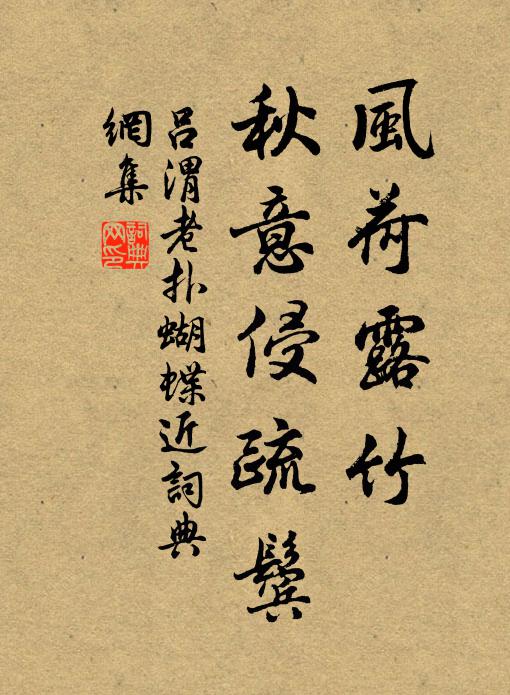 風荷露竹
秋意侵疏鬓
呂渭老扑蝴蝶近詞典
網集
詞典网印